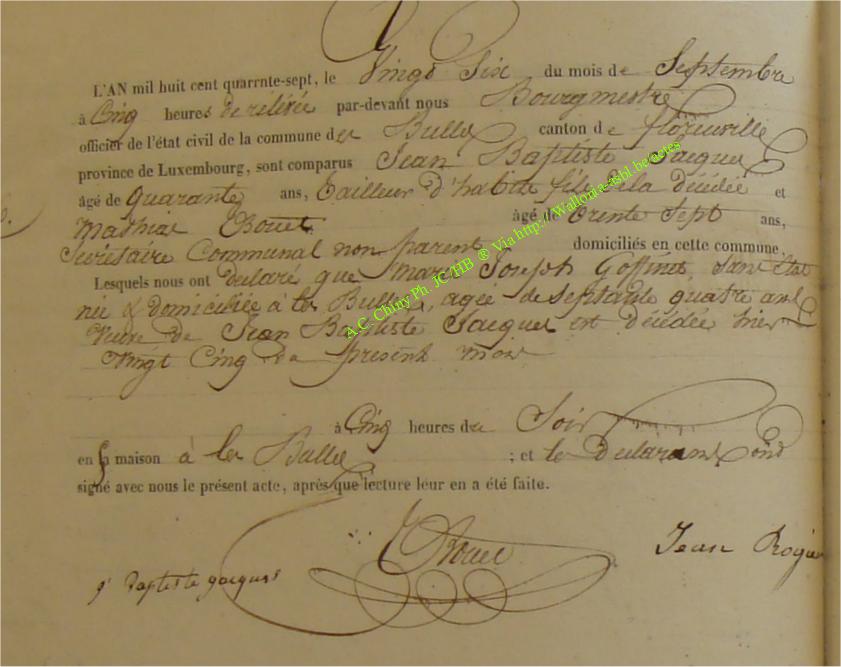 L'AN mil huit cent quarrnte-sept, le Vingt Six du mois de Septembre
à Cinq heures de relevée par-devant nous Bourgmestre
officier de l'état civil de la commune des Bulles canton de florenville
province de Luxembourg, sont comparus Jean Baptiste Jacques
âgé de quarante ans, Tailleur d'habits fils de la décédée et
Mathias Bouet âgé de trente sept ans,
Secrétaire Communal non parent domiciliés en cette commune,
Lesquels nous ont déclaré que Marie Joseph Goffinet, sans état
née & domiciliée à les Bulles, agée de septante quatre ans
Veuve de Jean Baptiste Jacques est décédée hier
Vingt Cinq du présent mois
à Cinq heures du Soir
en sa maison à les Bulles ; et les déclarants ond
signé avec nous le présent acte, après que lecture leur en a été faite.
Bouet Jean Rogier
j Baptiste jacques
A.C. Chiny Ph. JC HB ® Via http://Wallonia-asbl.be/actes